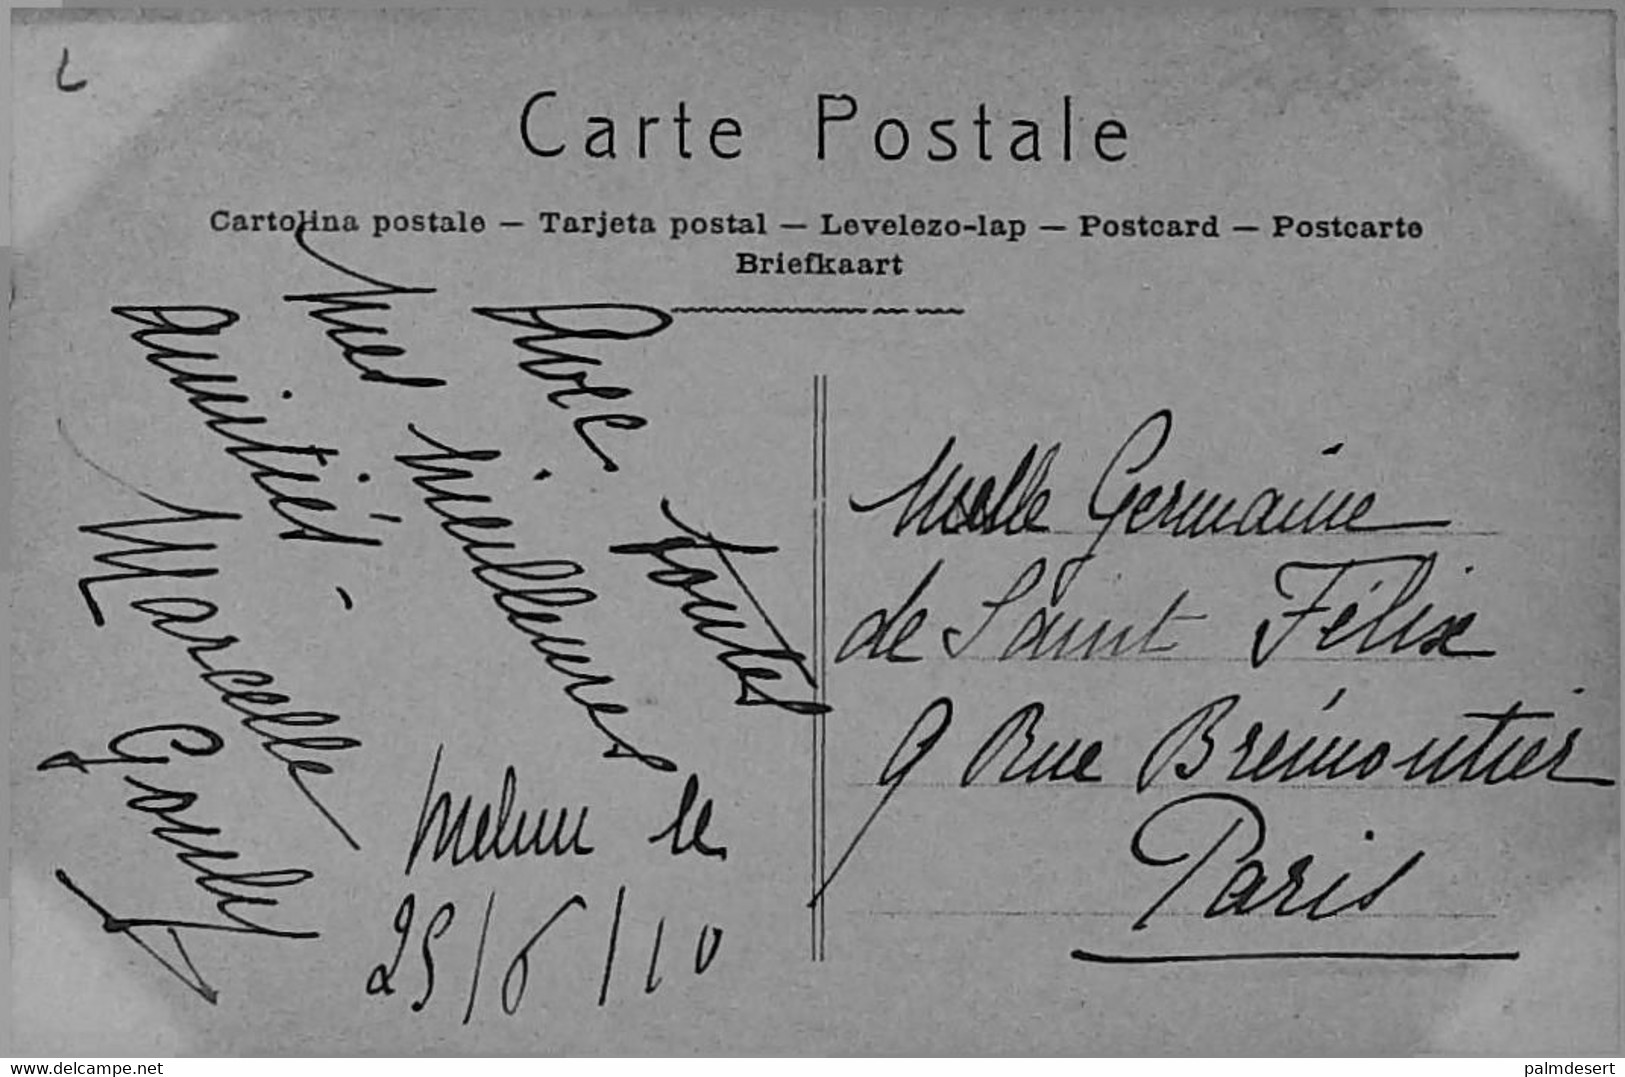 L
Carte Postale
Cartolina postale — Tarjeta postal — Levelezo-lap — Postcard — Postcarte
Briefkaart
Avec toutes
mes meilleures
amitiés
Marcelle
Melun le
25/6/10
Melle Germaine
de Saint Félix
9 Rue Brémontier
Paris
www.delcampe.net
palmdesert